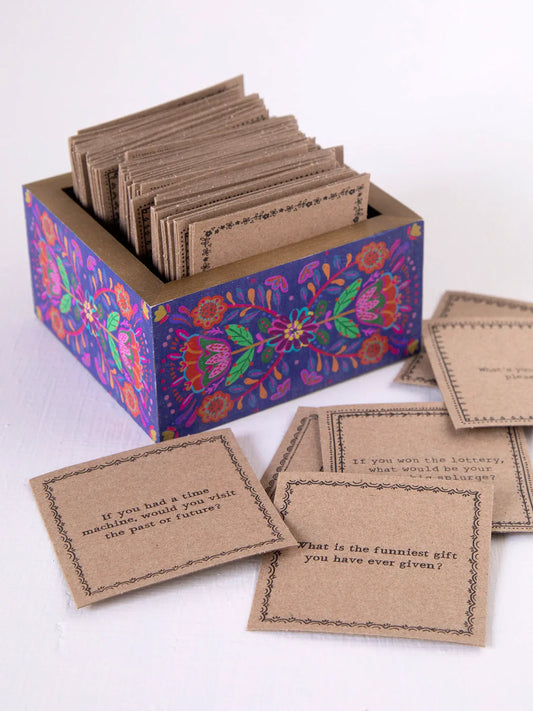 What's you
pleas
If you won the lottery,
what would be your
big splurge?
If you had a time
machine, would you visit
the past or future?
What is the funniest gift
you have ever given?